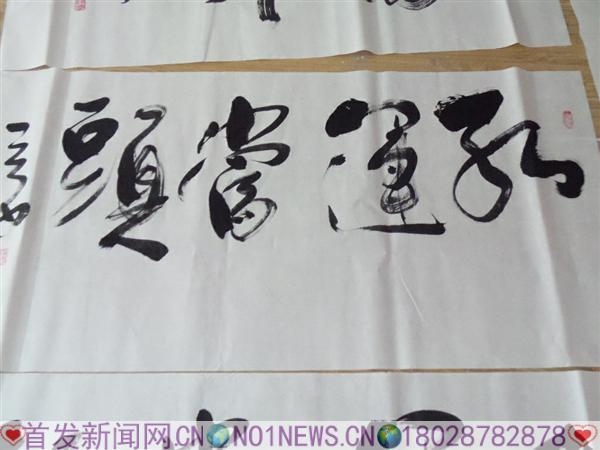 紅運當頭
首发新闻网.CN NO1NEWS.CN 18028782878